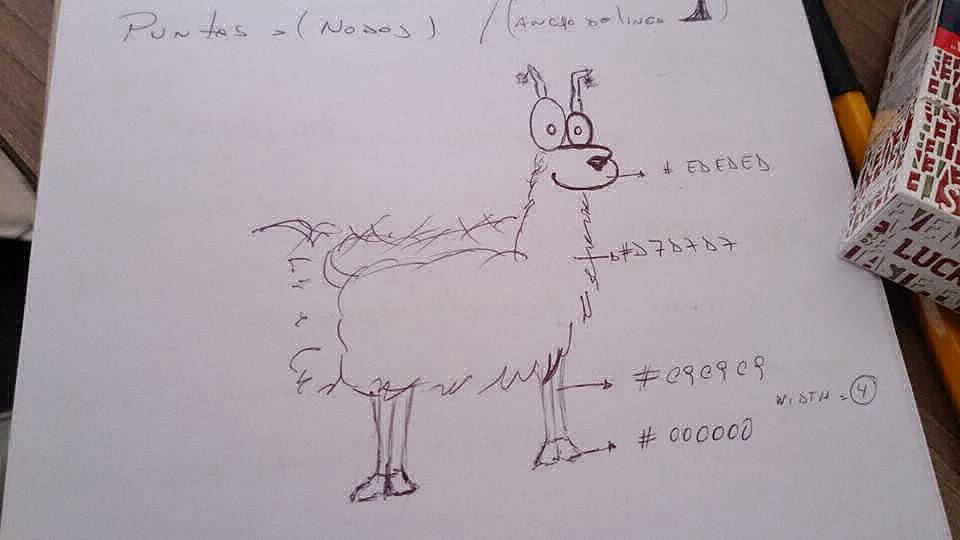 PUNTAS > (NODOS) / (ANCHO DE LINEA
# EDEDED
#D7D7D7
#C9C9C9
WIDTH = 4
# 000000
LUCK